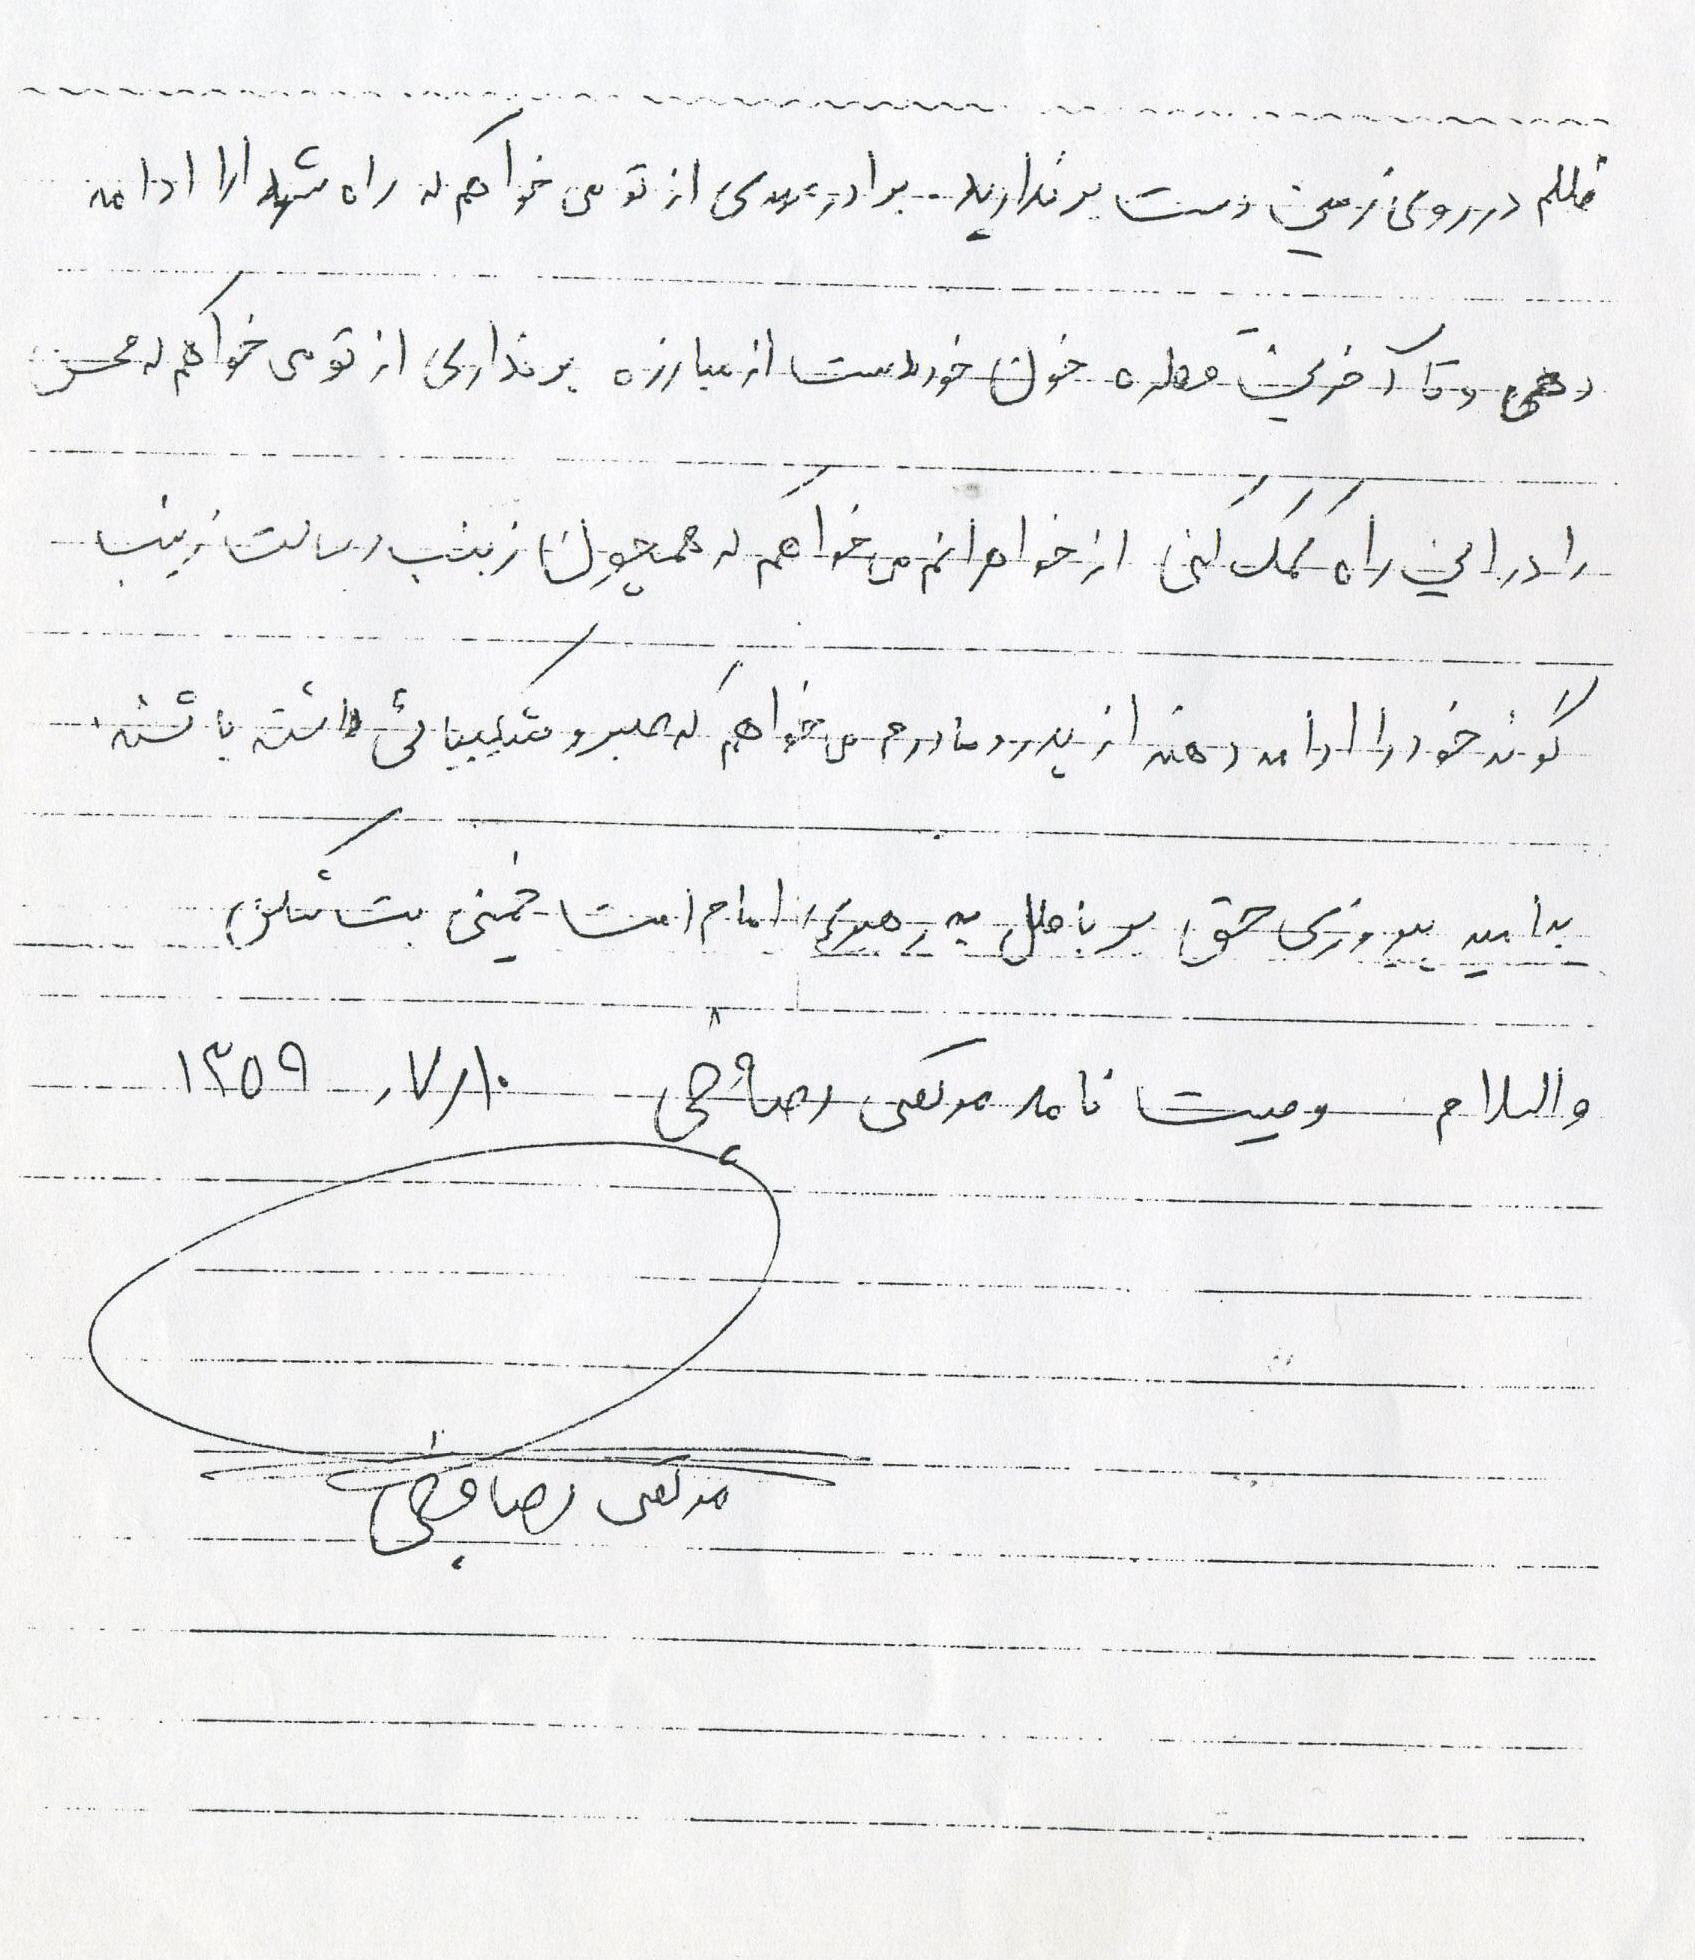 ظلم در روی زمین دست برندارید. برادر مهدی از تو می خواهم که راه شهدا را ادامه
دهی و تا آخرین قطره خون خود دست از مبارزه برنداری از تو می خواهم که محسن
را در این راه کمک کنی از خواهرانم می خواهم که همچون زینب رسالت زینب
گونه خود را ادامه دهند از پدر و مادرم می خواهم که صبر و شکیبائی داشته باشند.
به امید پیروزی حق بر باطل به رهبری امام امت خمینی بت شکن
والسلام وصیت نامه مرتضی رضا ۱۳۵۹/۷/۱۰
مرتضی رضا